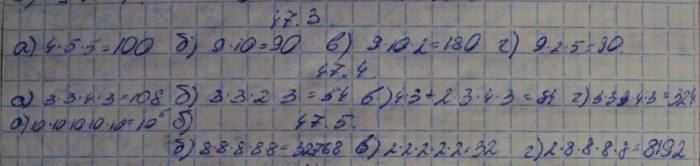 47.3.
а) 4·5·5=100 б) 9·10=90 в) 9·10·2=180 г) 9·2·5=90.
47.4.
а) 3·3·4·3=108 б) 3·3·2·3=54 в) 4·3+2·3·4·3=84 г) 3·3·9·4·3=324
а) 10·10·10·10·10=10⁵ б) 47.5.
б) 8·8·8·8·8=32768 в) 2·2·2·2·2=32 г) 2·8·8·8·8=8192